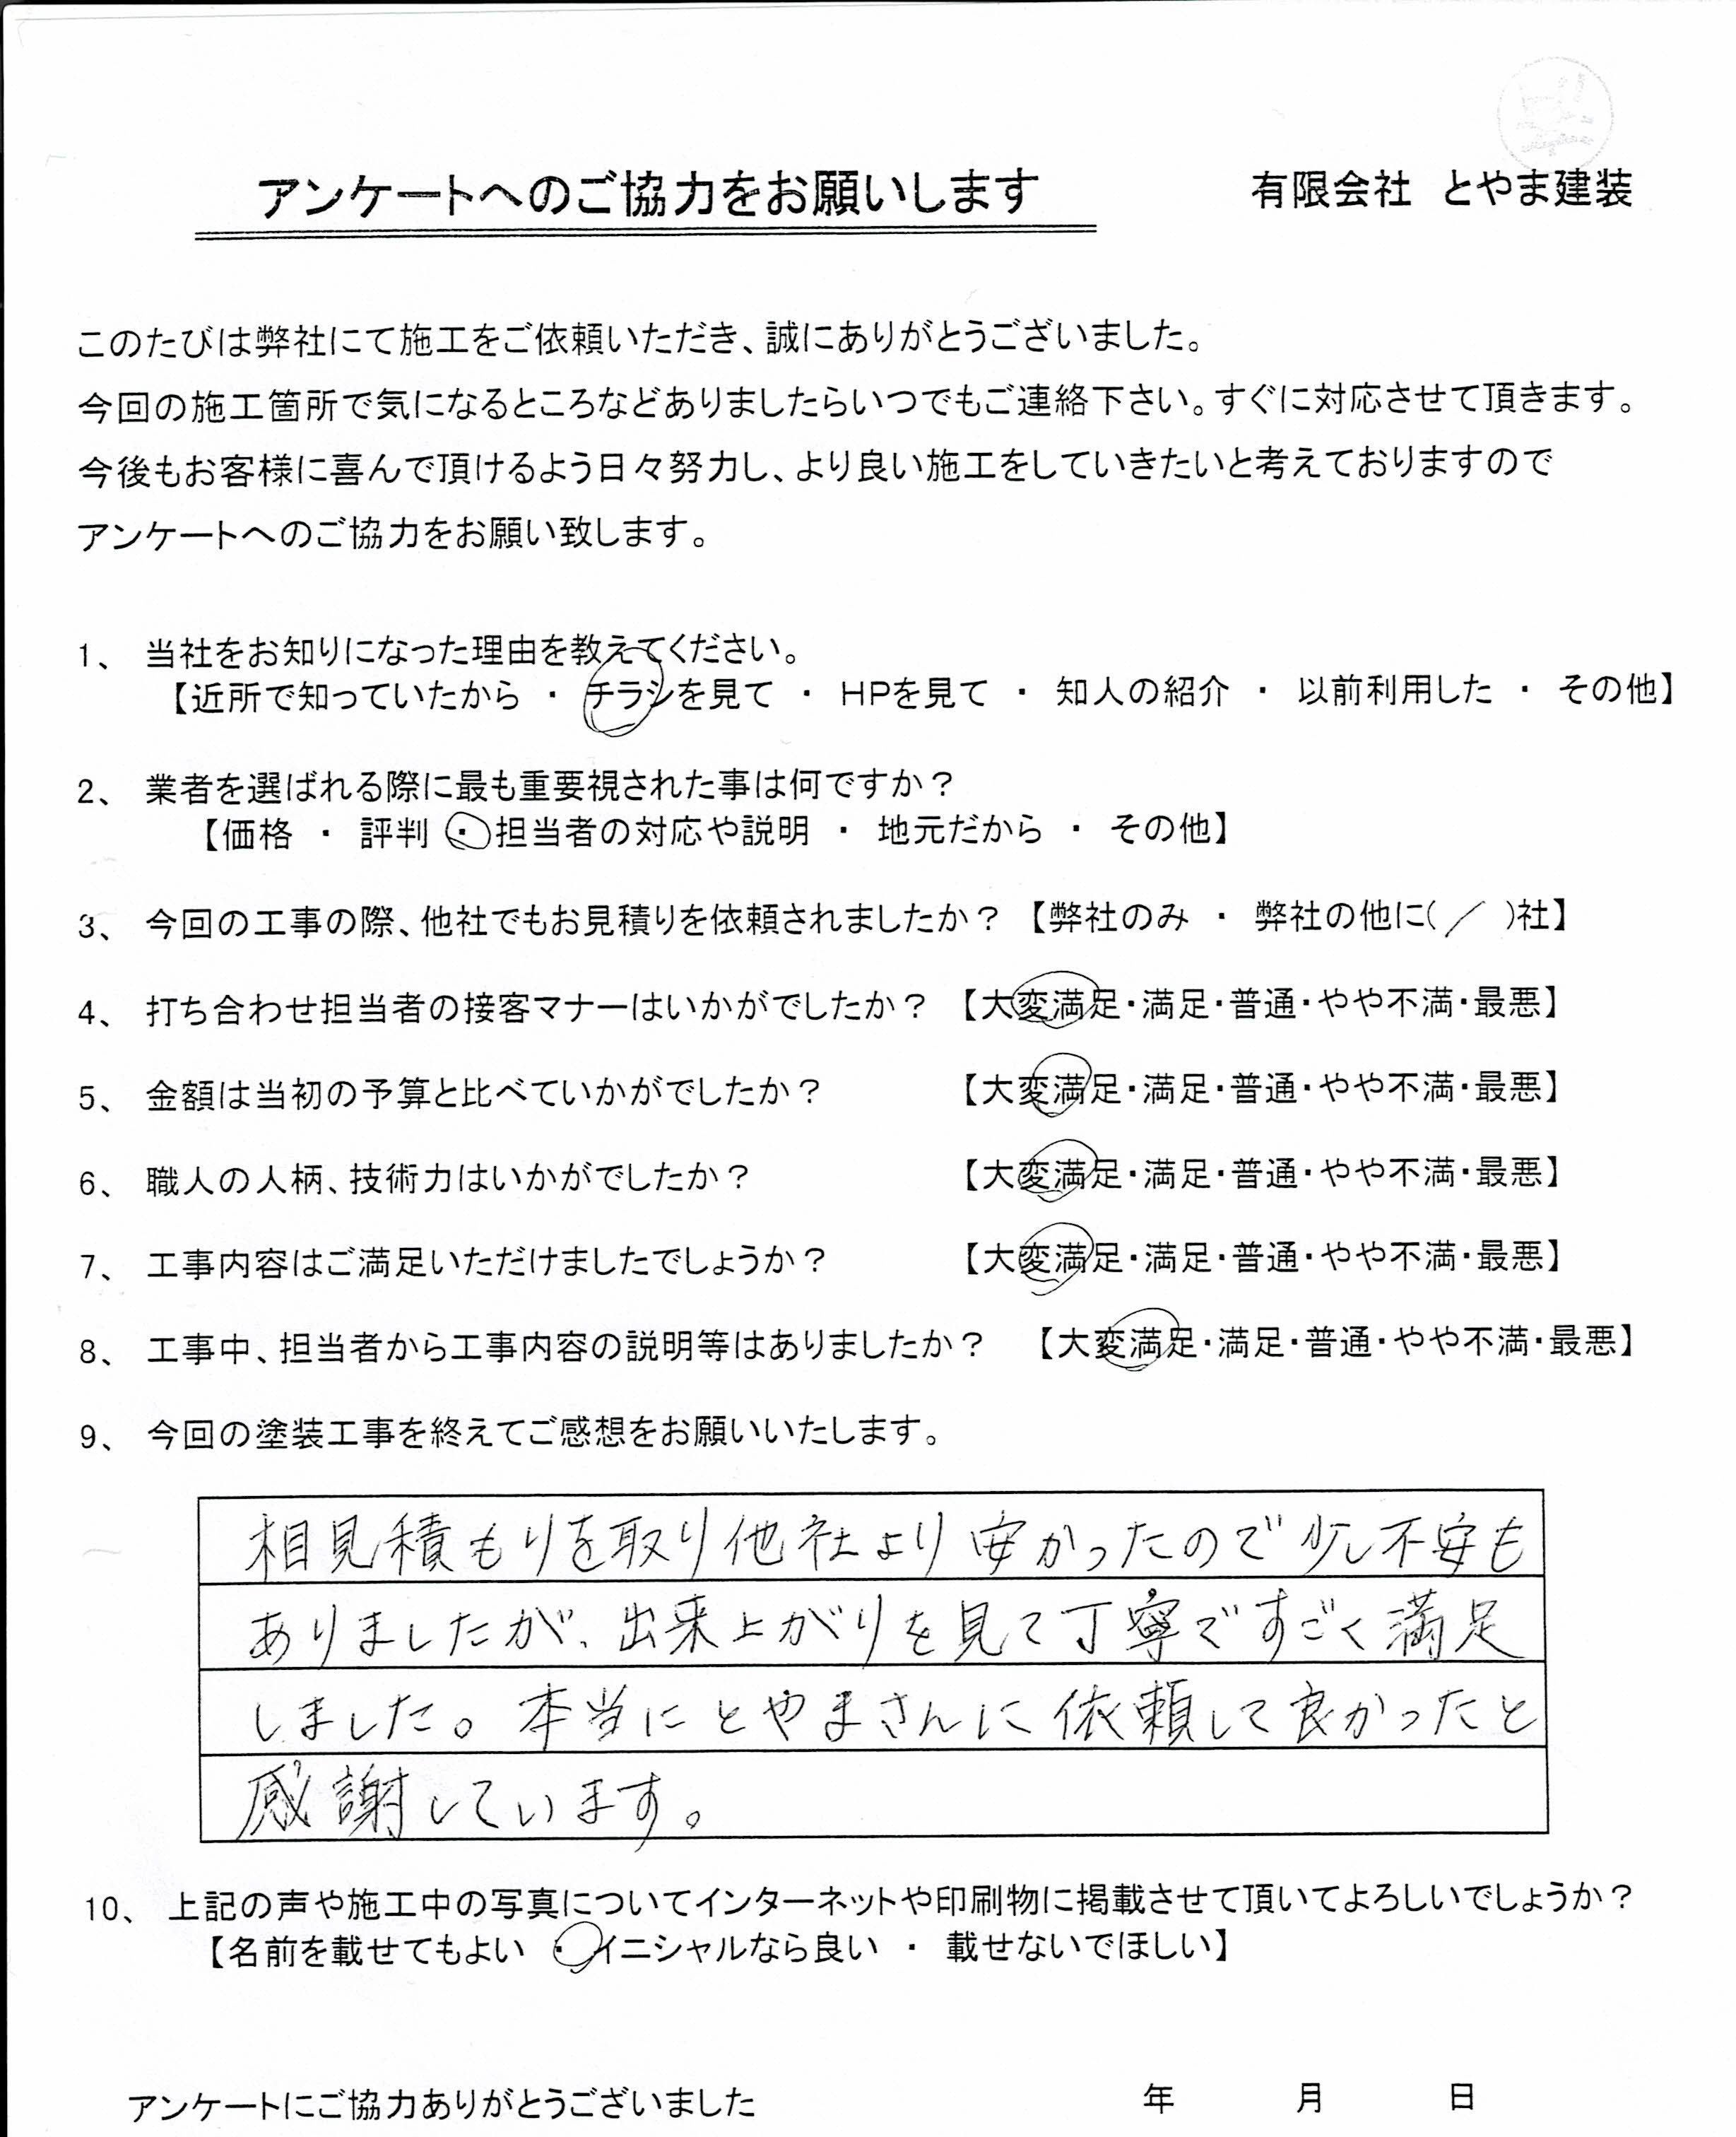 アンケートへのご協力をお願いします 有限会社 とやま建装
このたびは弊社にて施工をご依頼いただき、誠にありがとうございました。
今回の施工箇所で気になるところなどありましたらいつでもご連絡下さい。すぐに対応させて頂きます。
今後もお客様に喜んで頂けるよう日々努力し、より良い施工をしていきたいと考えておりますので
アンケートへのご協力をお願い致します。
1、 当社をお知りになった理由を教えてください。
【近所で知っていたから ・ チラシを見て ・ HPを見て ・ 知人の紹介 ・ 以前利用した ・ その他】
2、 業者を選ばれる際に最も重要視された事は何ですか？
【価格 ・ 評判 ・ 担当者の対応や説明 ・ 地元だから ・ その他】
3、 今回の工事の際、他社でもお見積りを依頼されましたか？ 【弊社のみ ・ 弊社の他に( / )社】
4、 打ち合わせ担当者の接客マナーはいかがでしたか？ 【大変満足・満足・普通・やや不満・最悪】
5、 金額は当初の予算と比べていかがでしたか？ 【大変満足・満足・普通・やや不満・最悪】
6、 職人の人柄、技術力はいかがでしたか？ 【大変満足・満足・普通・やや不満・最悪】
7、 工事内容はご満足いただけましたでしょうか？ 【大変満足・満足・普通・やや不満・最悪】
8、 工事中、担当者から工事内容の説明等はありましたか？ 【大変満足・満足・普通・やや不満・最悪】
9、 今回の塗装工事を終えてご感想をお願いいたします。
相見積もりを取り他社より安かったので少し不安も
ありましたが、出来上がりを見て丁寧ですごく満足
しました。本当にとやまさんに依頼して良かったと
感謝しています。
10、 上記の声や施工中の写真についてインターネットや印刷物に掲載させて頂いてよろしいでしょうか？
【名前を載せてもよい ・ イニシャルなら良い ・ 載せないでほしい】
アンケートにご協力ありがとうございました 年 月 日